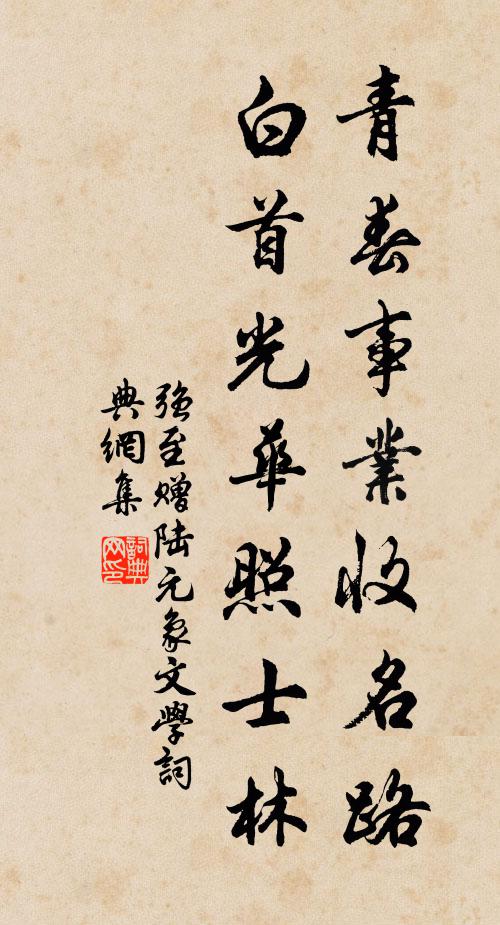 青春事業收名路
白首光華照士林
强至贈陆元象文學詞
典網集
詞典
网印